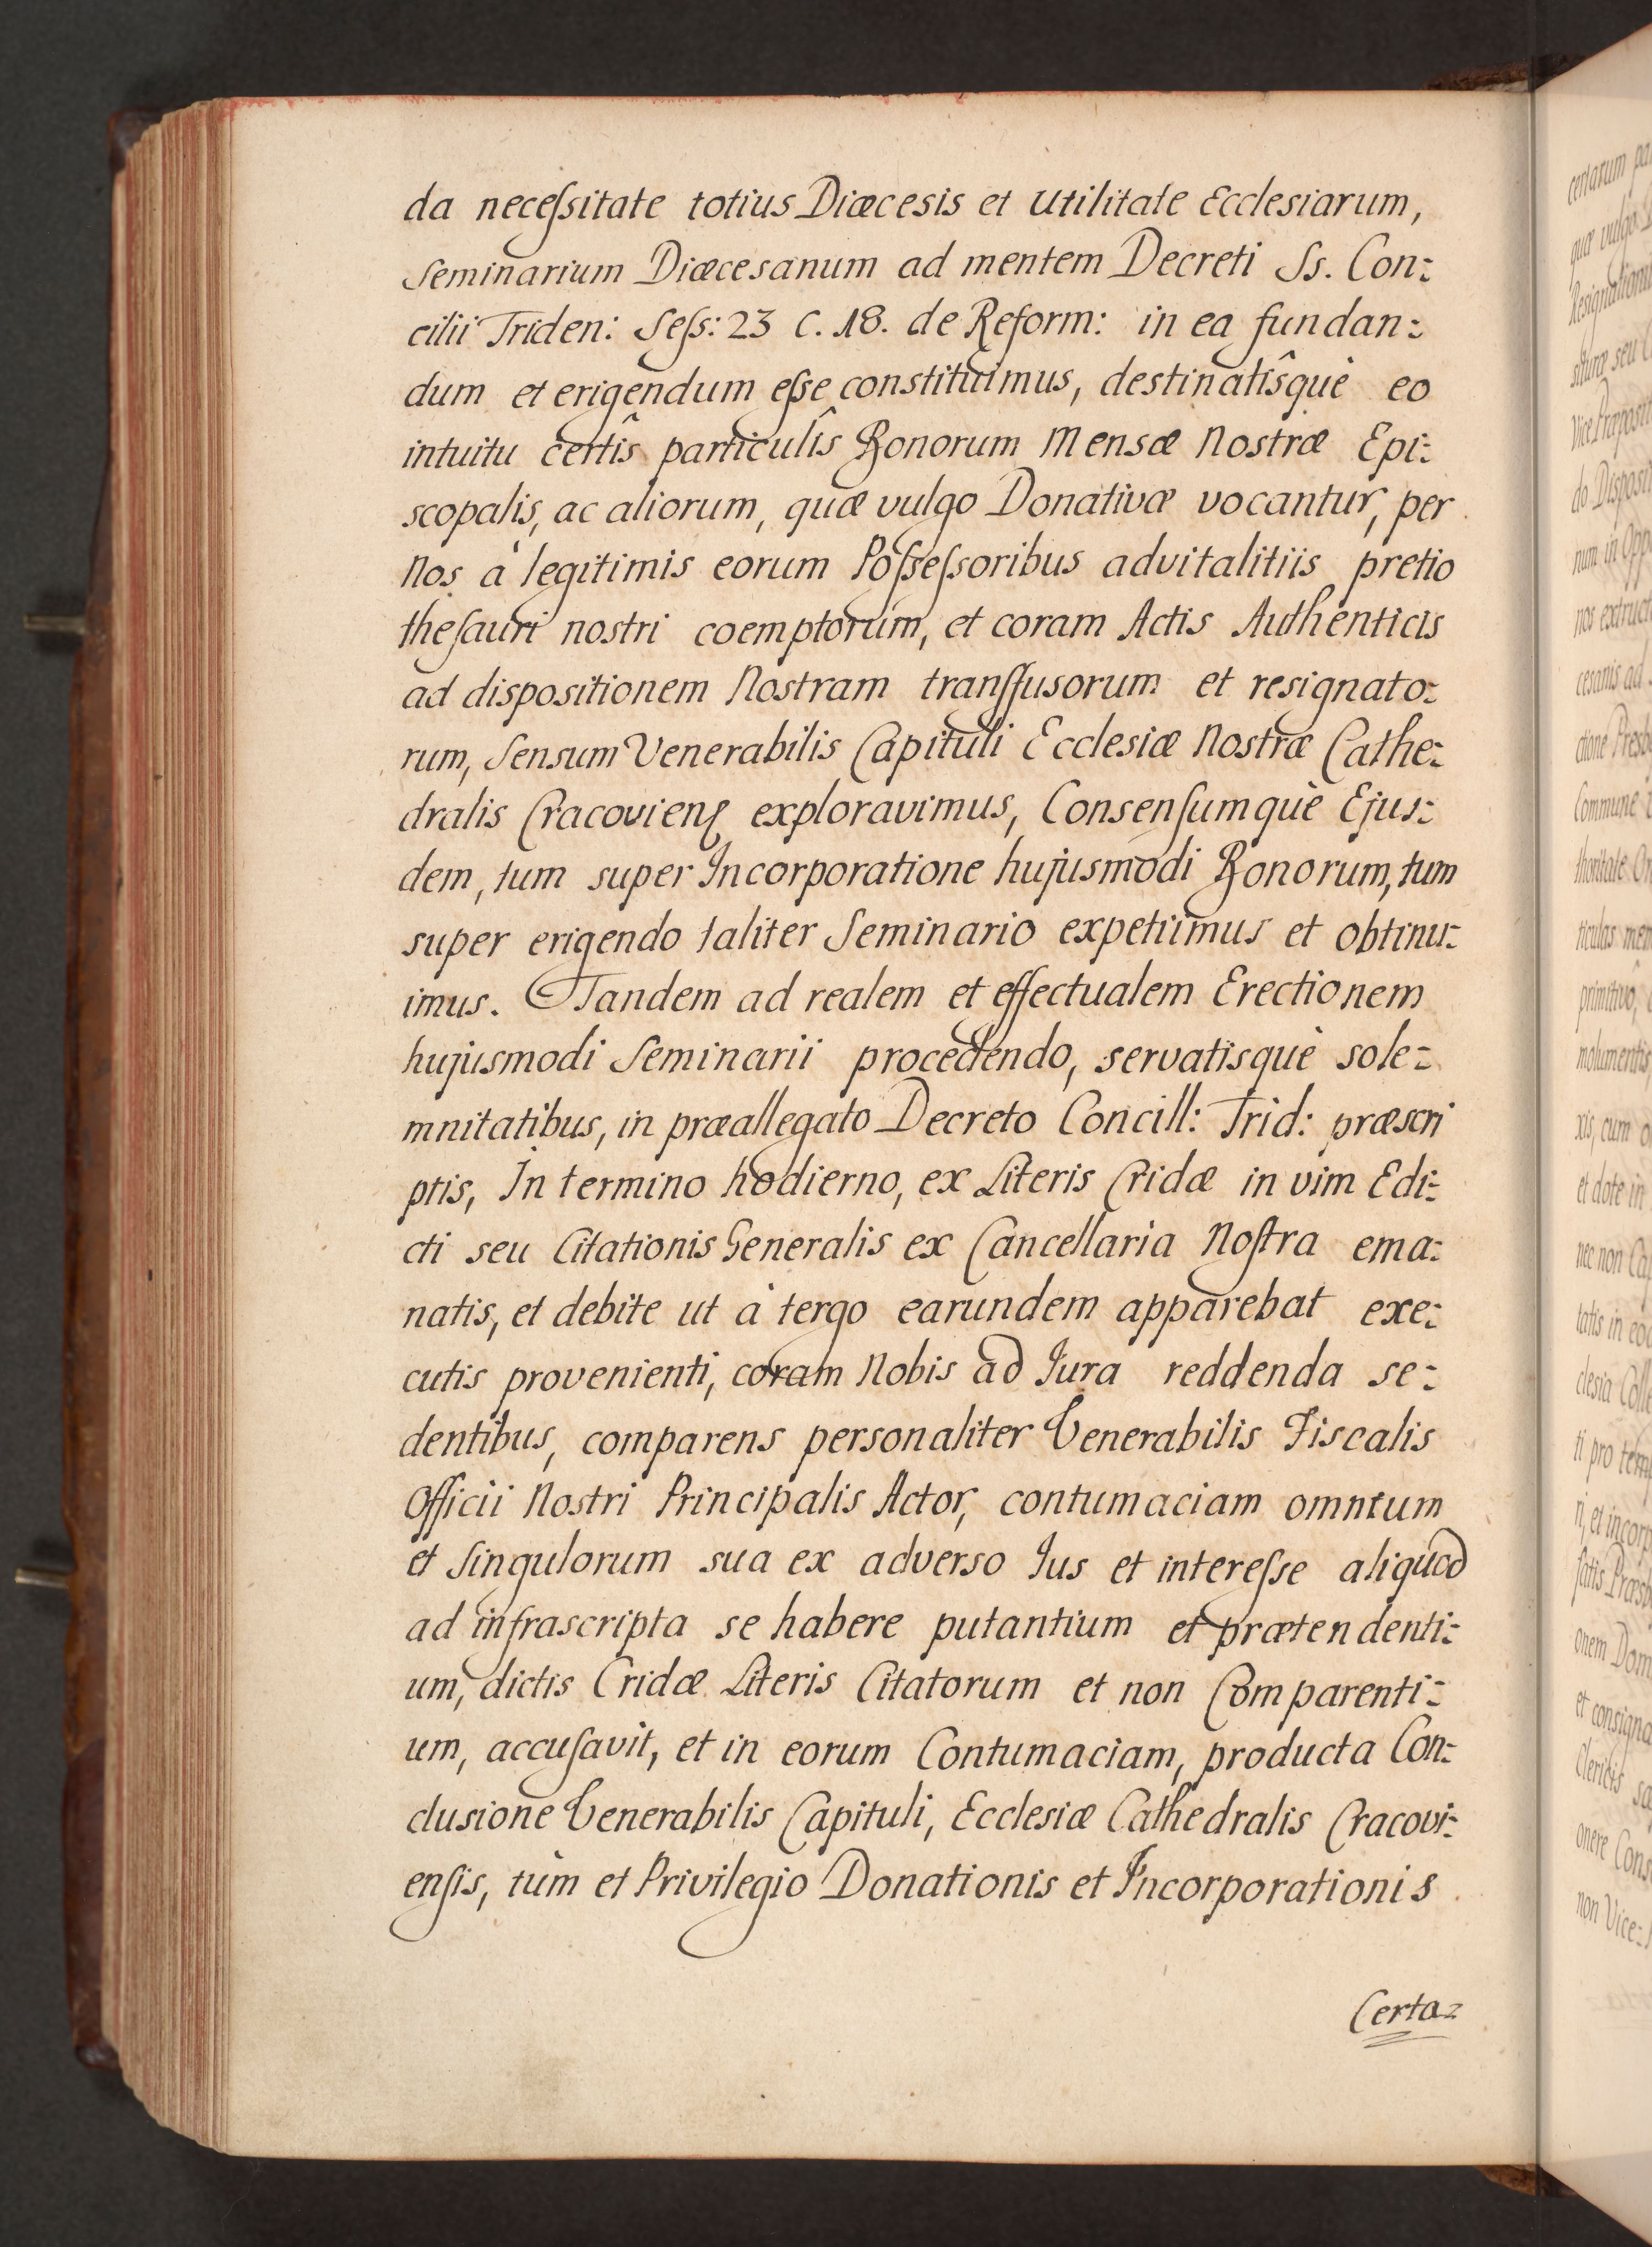 da neceſsitate totius Diœcesis et Utilitate Ecclesiarum,
Seminarium Diœcesanum ad mentem Decreti Ss. Con:
cilii Triden: Seſs: 23 C. 18. de Reform: in ea fundan:
dum et erigendum eſse constituimus, destinatîsquè eo
intuitu certîs particulîs Bonorum Mensæ Nostræ Epi:
scopalis, ac aliorum, quæ vulgo Donativæ vocantur, per
Nos à legitimis eorum Poſseſsoribus advitalitiis pretio
theſauri nostri coemptorum, et coram Actis Authenticis
ad dispositionem Nostram tranſfusorum et resignato:
rum, Sensum Venerabilis Capituli Ecclesiæ Nostræ Cathe:
dralis Cracovienſ exploravimus, Consenſumquè Ejus:
dem, tum super Incorporatione hujusmodi Bonorum, tum
super erigendo taliter Seminario expetiimus et obtinu:
imus. Tandem ad realem et effectualem Erectionem
hujusmodi Seminarii procedendo, servatisquè sole:
mnitatibus, in præallegato Decreto Concill: Trid: præscri
ptis, In termino hodierno, ex Literis Cridæ in vim Edi:
cti seu Citationis Generalis ex Cancellaria Noſtra ema:
natis, et debite ut à tergo earundem apparebat exe:
cutis provenienti, coram Nobis ad Jura reddenda se:
dentibus, comparens personaliter Venerabilis Fiscalis
Officii Nostri Principalis Actor, contumaciam omnium
et Singulorum sua ex adverso Jus et intereſse aliquod
ad infrascripta se habere putantium et prætendenti:
um, dictis Cridæ Literis Citatorum et non Comparenti:
um, accuſavit, et in eorum Contumaciam, producta Con:
clusione Venerabilis Capituli, Ecclesiæ Cathedralis Cracovi:
enſis, tùm et Privilegio Donationis et Incorporationis
Certa: